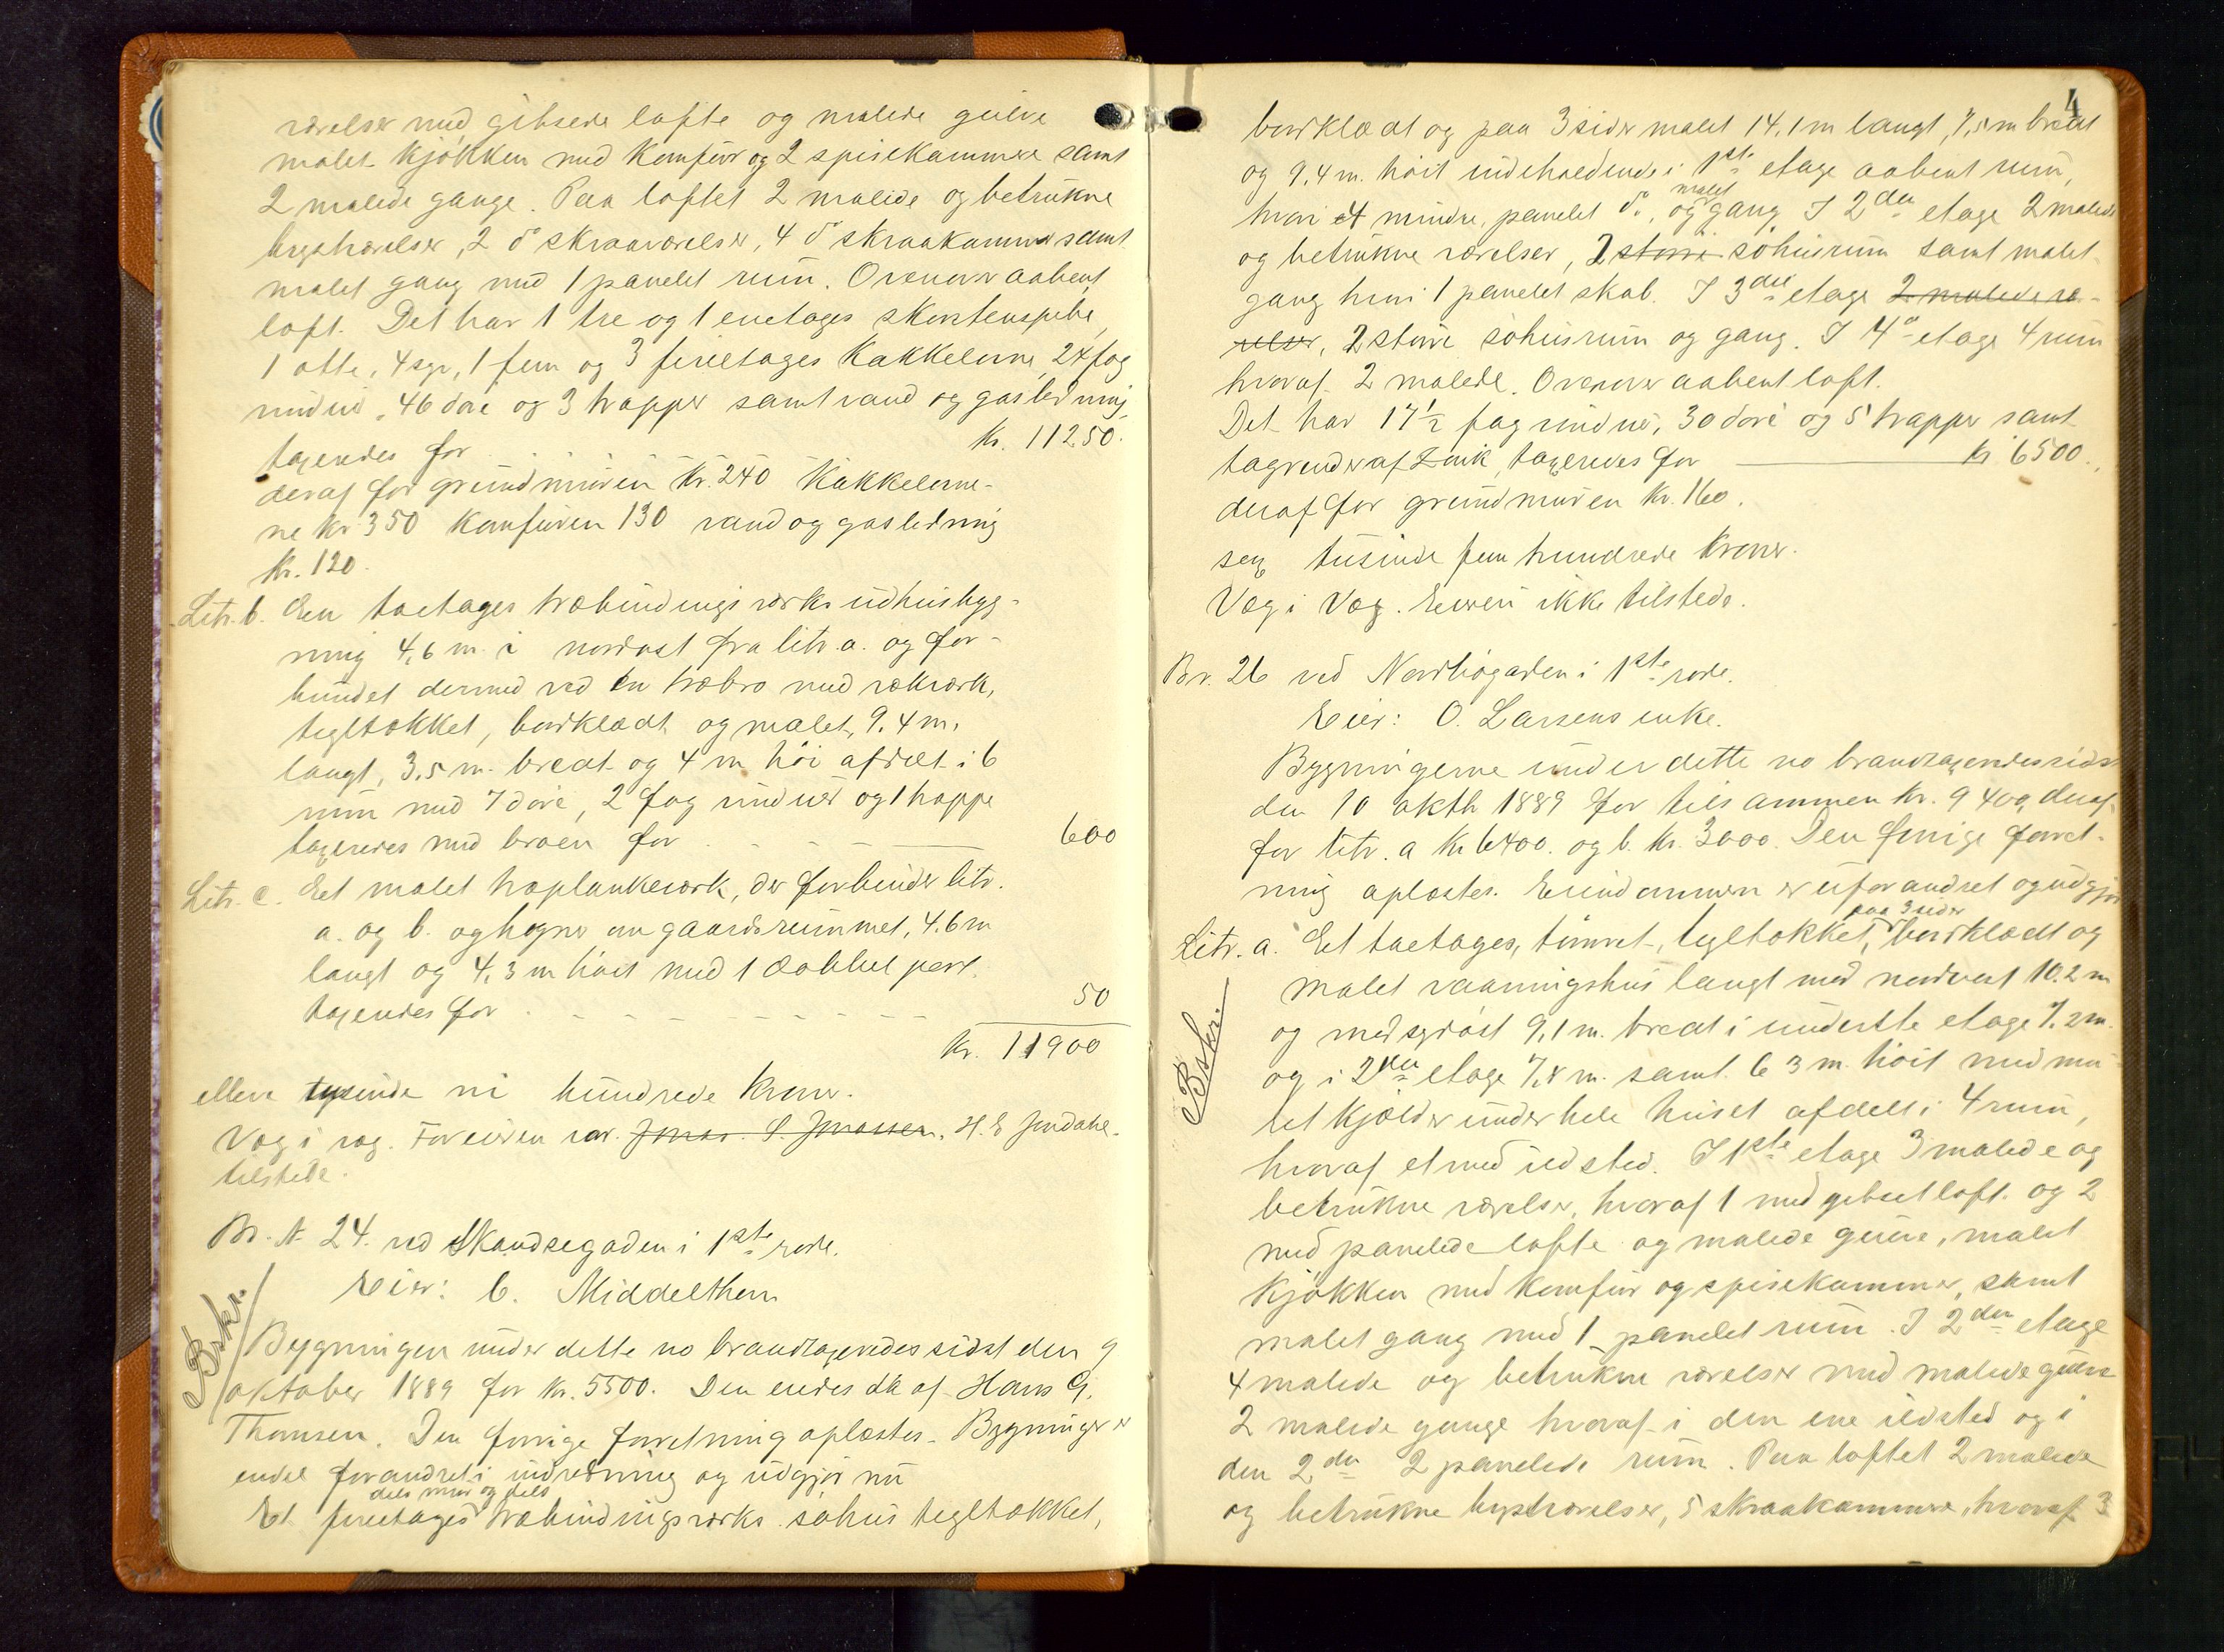 værelser med gibsede lofte og malede gulve
malet kjøkken med komfur og 2 spisekammere samt
2 malede gange. Paa loftet 2 malede og betrukne
kvistværelser, 2 do skraaværelser, 4 do skraakammer samt
malet gang med 1 panelet rum. Ovenover aabent
loft. Det har 1 tre og 1 enetages skorstenspibe,
1 otte, 4 syv, 1 fem og 3 fireetages kakkelovne, 24 fag
vinduer, 46 døre og 3 trapper samt vand og gasledning
taxeredes for Kr. 11250.
deraf for grundmuren Kr. 240 Kakkelovne-
ne Kr 350 Komfuren 130 vand og gasledning
Kr. 120.
Litr. b. En toetages træbindingsværks udhusbyg-
ning 4,6 m i nordost fra litr. a. og for-
bundet dermed ved en træbro med rækværk,
tegltækket, bordklædt og malet, 9.4 m.
langt, 3.5 m. bredt og 4 m høi afdelt i 6
rum med 7 døre, 2 fag vinduer og 1 trappe
taxeredes med broen for 600
Litr. c. Eet malet træplankeværk, der forbinder litr.
a. og b. og hegner om gaardsrummet, 4.6 m
langt og 4,3 m høit med 1 dobbel port.
taxeredes for 50
Kr. 11900
elleve tusinde ni hundrede kroner.
Væg i væg. For eieren var Jonas. S. Jonassen. H. E Jendahl
tilstede.
Br. N. 24. ved Skandsegaden i 1ste rode.
Eier: C. Middelthon
Bskr.
Bygningen under dette no brandtaxeredes sidst den 9
oktober 1889 for Kr. 5500. Den eiedes da af Hans G.
Thomsen. Den forrige forretning oplæstes. Bygningen er
endel forandret i indredning og udgjør nu
dels mur og dels
Et fireetages træbindingsværks søhus tegltækket,
4
bordklædt og paa 3 sider malet 14,1 m langt, 7,5 m bredt
og 9.4 m. høit indeholdende i 1ste etage aabent rum,
malet
hvori et mindre, panelet do., og gang I 2den etage 2 malede
og betrukne værelser, 2 større søhusrum samt malet
gang hvori 1 panelet skab. I 3die etage 2 malede væ-
relser, 2 større søhusrum og gang. I 4de etage 4 rum
hvoraf 2 malede. Ovenover aabent loft.
Det har 17 1/2 fag vinduer, 30 døre og 5 trapper samt
tagrender af Zink, taxeredes for Kr 6500.
deraf for grundmuren Kr. 160.
sex tusinde fem hundrede kroner.
Væg i Væg. Eieren ikke tilstede.
Br. 26 ved Nordbøgaden i 1ste rode.
Eier: O. Larsens enke.
Bygningerne under dette no brandtaxeredes sidst
den 10 oktb 1889 for tilsammen Kr. 9400, deraf
for litr. a Kr 6400. og b. Kr. 3000. Den forrige forret-
ning oplæstes. Eiendommen er uforandret og udgjør
paa 3 sider
Litr. a. Et toetages, tømret, tegltækket, bordklædt og
Bskr.
malet vaaningshus langt mod nordvest 10.2 m
og mod sydøst 9,1 m. bredt i underste etage 7.2 m.
og i 2den etage 7,8 m. samt 6 3 m. høit med mu
ret kjælder under hele huset afdelt i 4 rum,
hvoraf et med ildsted. I 1ste etage 3 malede og
betrukne værelser, hvoraf 1 med gibset loft og 2
med panelede lofte og malede gulve, malet
kjøkken med komfur og spisekammer, samt
malet gang med 1 panelet rum. I 2den etage
4 malede og betrukne værelser med malede gulve
2 malede gange hvoraf i den ene ildsted og i
den 2den 2 panelede rum. Paa loftet 2 malede
og betrukne kvistværelser, 5 skraakammere, hvoraf 3